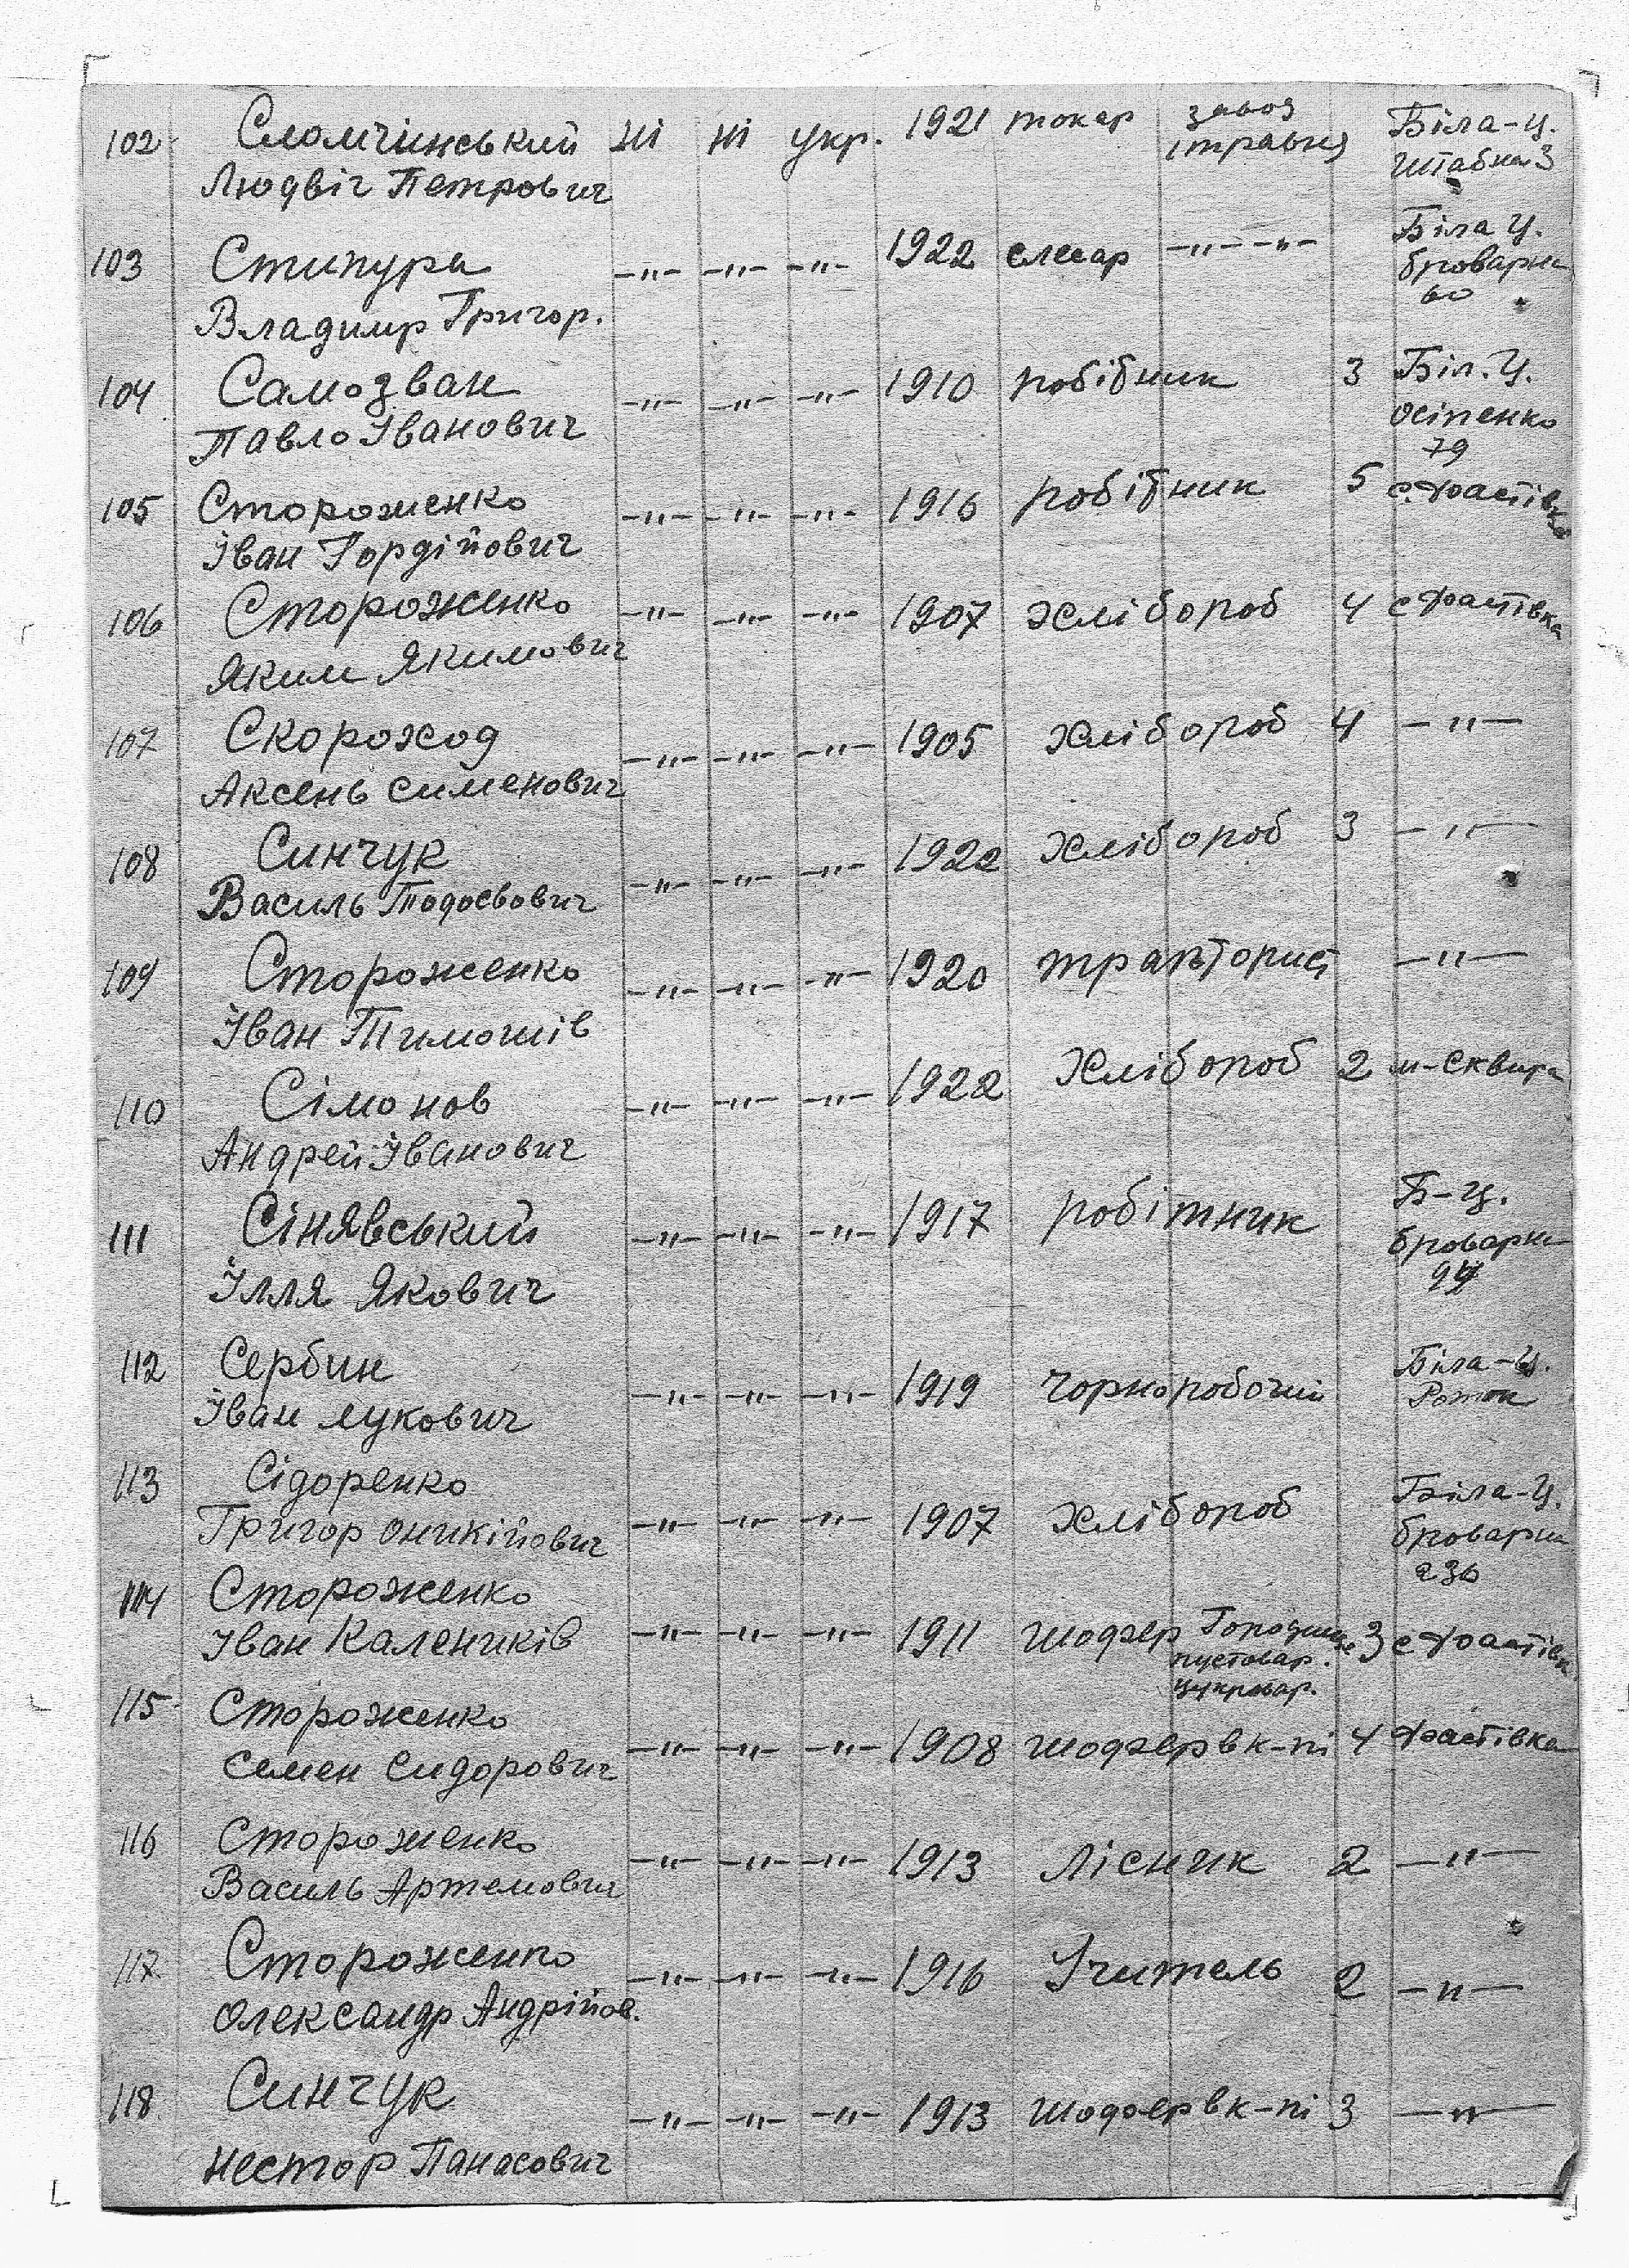 102 Сломчинський ні ні укр. 1921 токар завод Біла-Ц.
Людвіг Петрович 1 травня Штабна 3
103 Стипура -"- -"- -"- 1922 слесар -"- -"- Біла Ц.
Владимир Григор. броварна
60
104 Самозван -"- -"- -"- 1910 робібник 3 Біл. Ц.
Павло Іванович Осіпенко
79
105 Стороженко -"- -"- -"- 1916 робібник 5 с. Фастівка
Іван Гордійович
106 Стороженко -"- -"- -"- 1907 хлібороб 4 с Фастівка
Яким Якимович
107 Скороход -"- -"- -"- 1905 хлібороб 4 -"-
Аксень Сименович
108 Синчук -"- -"- -"- 1922 хлібороб 3 -"-
Василь Тодосьович
109 Стороженко -"- -"- -"- 1920 тракторист -"-
Іван Тимошів
110 Сімонов -"- -"- -"- 1922 Хлібороб 2 м-Сквира
Андрей Іванович
111 Сінявський -"- -"- -"- 1917 робітник Б-Ц.
Ілля Якович броварна
112 Сербин -"- -"- -"- 1919 чорноробочий Біла-Ц.
Іван Лукович Роток
113 Сідоренко -"- -"- -"- 1907 хлібороб Біла-Ц.
Григор Оникійович броварна
230
114 Стороженко -"- -"- -"- 1911 шофер Городище 3 с Фастівка
Іван Калеників пустовар.
цукровар.
115 Стороженко -"- -"- -"- 1908 шофер в к-пі 4 Фастівка
Семен Сидорович
116 Стороженко -"- -"- -"- 1913 Лісник 2 -"-
Василь Артемович
117 Стороженко -"- -"- -"- 1916 Учитель 2 -"-
Олександр Андрійов.
118 Синчук -"- -"- -"- 1913 шофер в к-пі 3 -"-
Нестор Панасович